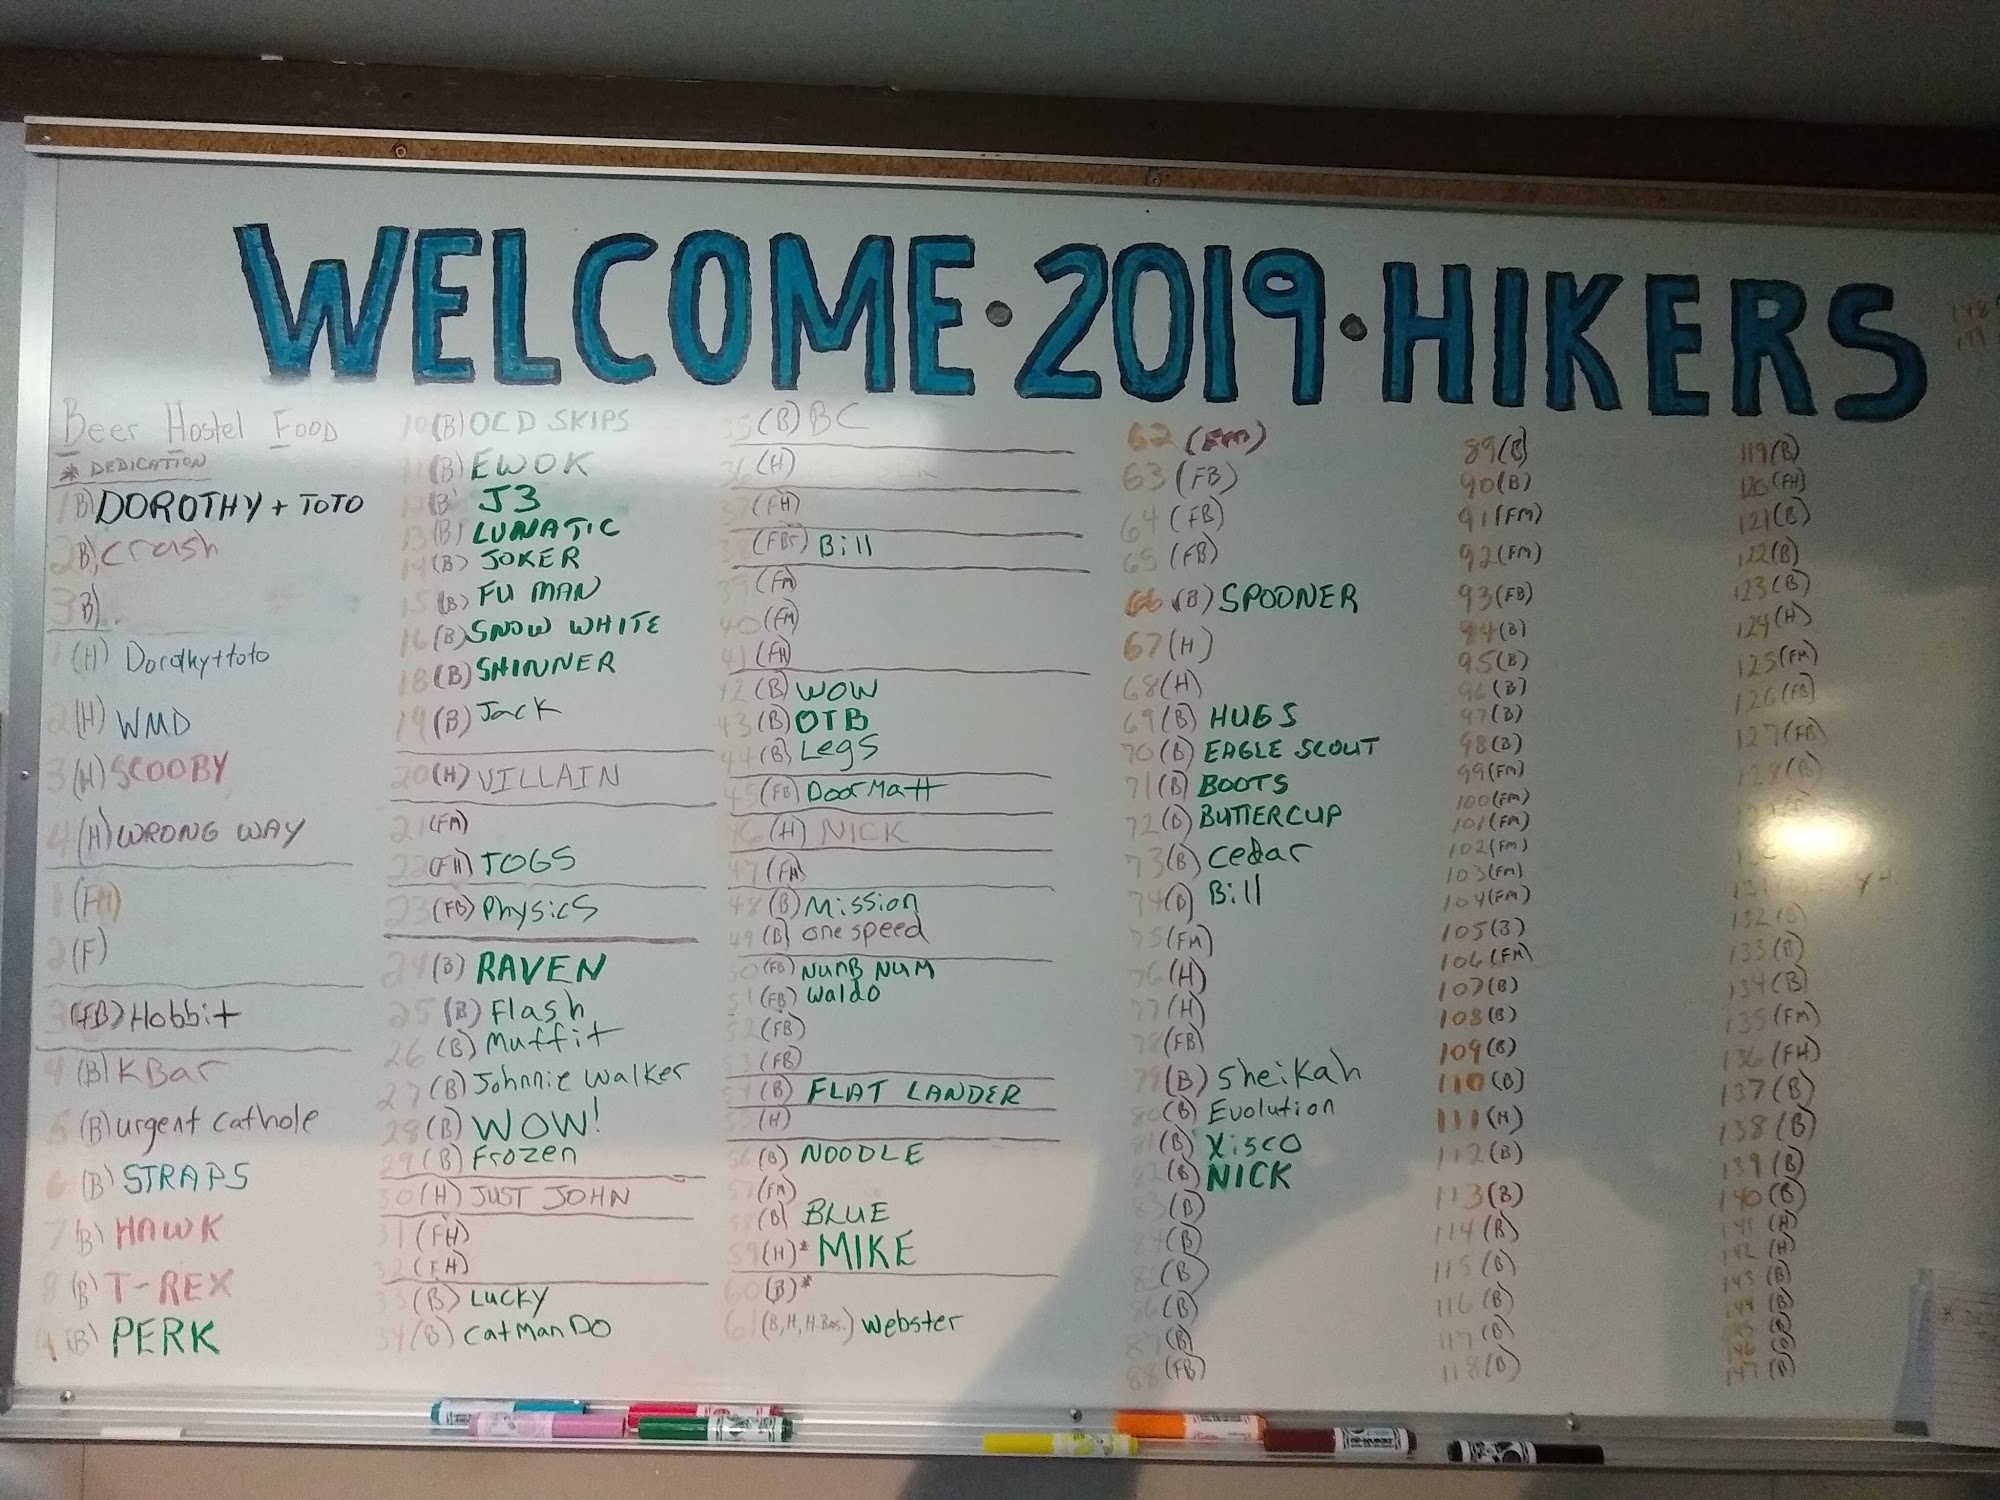 WELCOME · 2019 · HIKERS
Beer Hostel Food
* DEDICATION
1 B) DOROTHY + TOTO
2 B) Crash
3 B)
1 (H) Dorothy + toto
2 (H) WMD
3 (H) SCOOBY
4 (H) WRONG WAY
1 (FM)
2 (F)
3 (FB) Hobbit
4 (B) KBar
5 (B) urgent cathole
6 (B) STRAPS
7 (B) HAWK
8 (B) T-REX
9 (B) PERK
10 (B) OLD SKIPS
11 (B) EWOK
12 (B) J3
13 (B) LUNATIC
14 (B) JOKER
15 (B) FU MAN
16 (B) SNOW WHITE
18 (B) SHINNER
19 (B) Jack
20 (H) VILLAIN
21 (FM)
22 (FH) JOGS
23 (FB) Physics
24 (B) RAVEN
25 (B) Flash
26 (B) Muffit
27 (B) Johnnie Walker
28 (B) WOW!
29 (B) Frozen
30 (H) JUST JOHN
31 (FH)
32 (FH)
33 (B) LUCKY
34 (B) CatManDO
35 (B) BC
36 (H)
37 (FH)
38 Bill
39 (FM)
40 (FM)
41 (FH)
42 (B) WOW
43 (B) OTB
44 (B) Legs
45 (FB) DoorMatt
46 (H) NICK
47 (FH)
48 (B) Mission
49 (B) one speed
50 (FB) NUMB NUM
51 (FB) Waldo
52 (FB)
53 (FB)
54 (B) FLAT LANDER
55 (H)
56 (B) NOODLE
57 (FM)
58 (B) BLUE
59 (H)* MIKE
60 (B)*
61 (B,H,H.Bas.) Webster
62 (FM)
63 (FB)
64 (FB)
65 (FB)
66 (B) SPOONER
67 (H)
68 (H)
69 (B) HUGS
70 (B) EAGLE SCOUT
71 (B) BOOTS
72 (B) BUTTERCUP
73 (B) Cedar
74 (B) Bill
75 (FM)
76 (H)
77 (H)
78 (FB)
79 (B) Sheikah
80 (B) Evolution
81 (B) Xisco
82 (B) NICK
83 (B)
84 (B)
85 (B)
86 (B)
87 (B)
88 (FB)
89 (B)
90 (B)
91 (FM)
92 (FM)
93 (FB)
94 (B)
95 (B)
96 (B)
97 (B)
98 (B)
99 (FM)
100 (FM)
101 (FM)
102 (FM)
103 (FM)
104 (FM)
105 (B)
106 (FM)
107 (B)
108 (B)
109 (B)
110 (B)
111 (H)
112 (B)
113 (B)
114 (B)
115 (B)
116 (B)
117 (B)
118 (B)
119 (B)
120 (FH)
121 (B)
122 (B)
123 (B)
124 (H)
125 (FM)
126 (FB)
127 (FB)
128 (B)
132 (B)
133 (B)
134 (B)
135 (FM)
136 (FH)
137 (B)
138 (B)
139 (B)
140 (B)
141 (H)
142 (H)
143 (B)
144 (B)
145 (B)
146 (B)
147 (B)
148